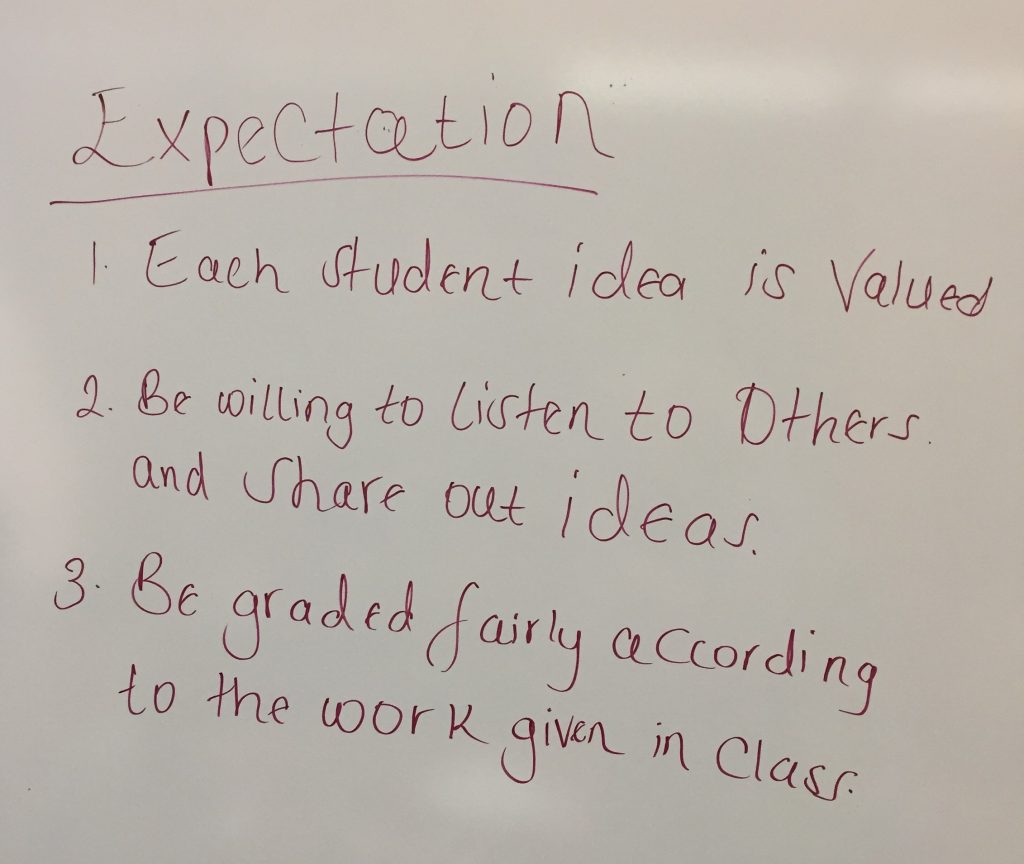 Expectation
1. Each student idea is Valued
2. Be willing to listen to Others.
and share out ideas.
3. Be graded fairly according
to the work given in Class.